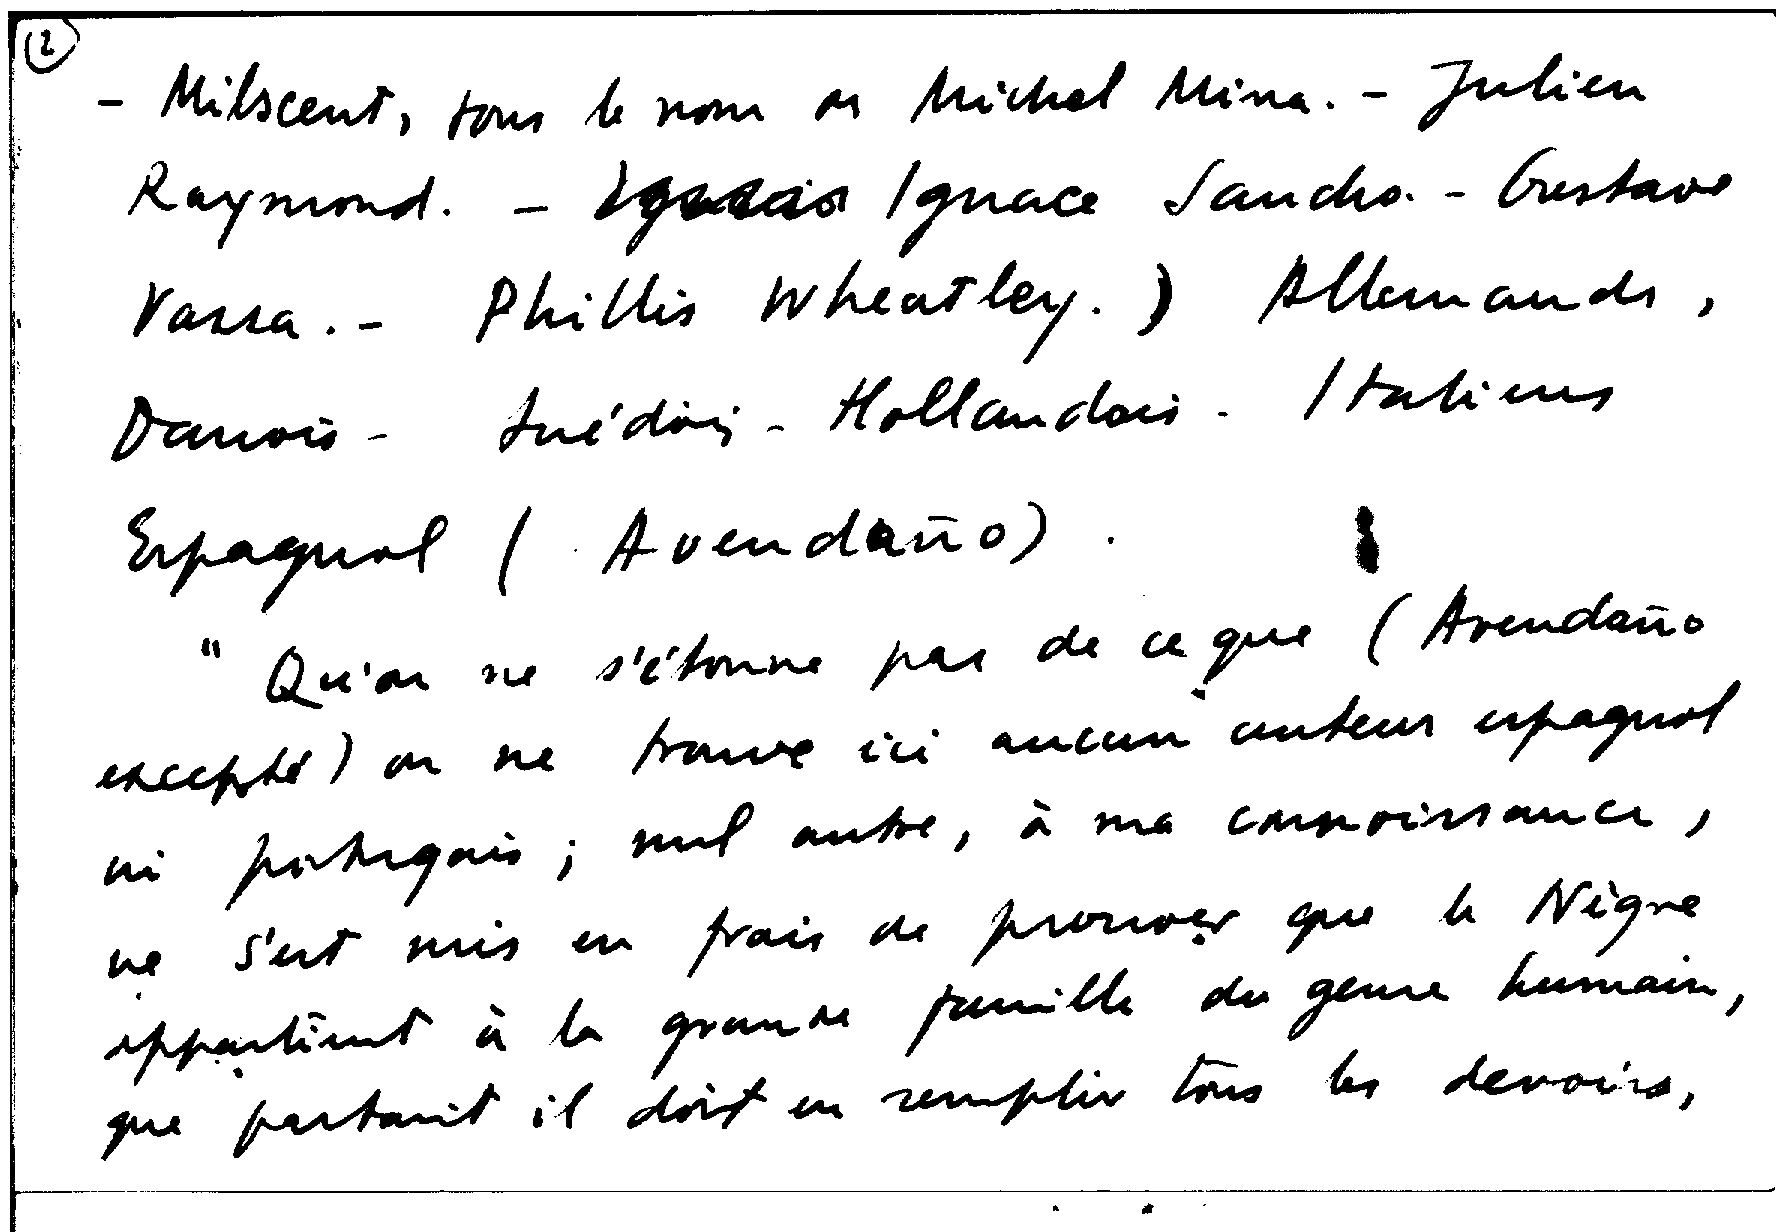 2
- Milscent, sous le nom de Michel Mina. - Julien
Raymond. - Ignacio Ignace Sancho. - Gustave
Vassa. - Phillis Wheatley.) Allemands,
Danois - Suédois - Hollandais - Italiens
Espagnol (Avendaño).
"Qu'on ne s'étonne pas de ce que (Avendaño
excepté) on ne trouve ici aucun auteur espagnol
ni portugais ; nul autre, à ma connoissance,
ne s'est mis en frais de prouver que le Nègre
appartient à la grande famille du genre humain,
que partant il doit en remplir tous les devoirs,